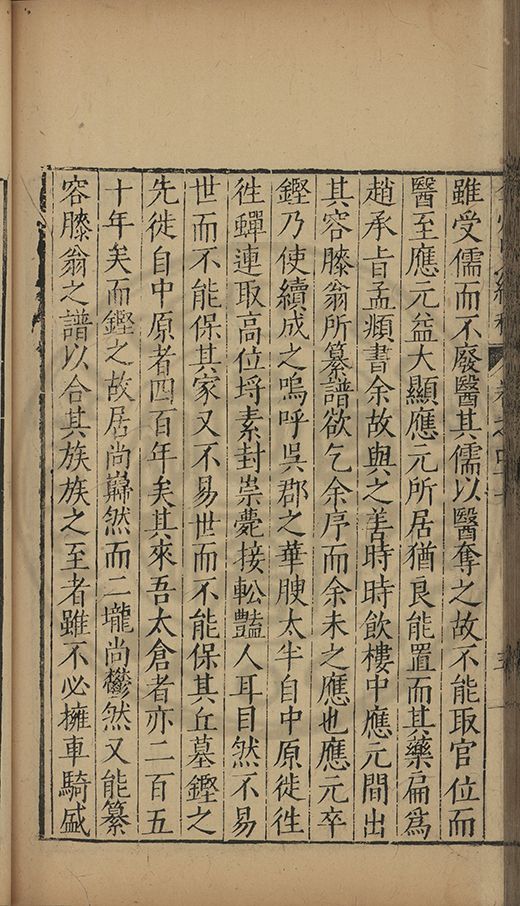 雖受儒而不廢醫其儒以醫奪之故不能取官位而
醫至應元益大顯應元所居猶良能置而其藥扁爲
趙承旨孟頫書余故與之善時時飲樓中應元間出
其容膝翁所纂譜欲乞余序而余未之應也應元卒
鏗乃使續成之嗚呼吳郡之華腴太半自中原徙徃
徃蟬連取高位埓素封崇甍接軿豔人耳目然不易
世而不能保其家又不易世而不能保其丘墓鏗之
先徙自中原者四百年矣其來吾太倉者亦二百五
十年矣而鏗之故居尚巋然而二壠尚鬱然又能纂
容膝翁之譜以合其族族之至者雖不必擁車騎盛